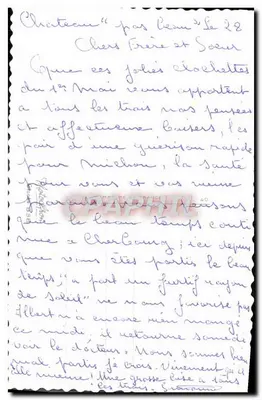 Chateau "pas beau" le 28
Chers Frère et Soeur
Que ces jolies clochettes
du 1er Mai vous apportent
à tous les trois nos pensées
et affectueux baisers, l'es
poir d'une guérison rapide
pour Michou, la santé
pour vous et
que le beau temps conti
nue à Cherbourg ; ici depuis
que vous êtes partis le beau
temps, à part un furtif rayon
de soleil ne nous favorise pas
encore rien mangé
ce midi il retourne samedi
voir le docteur. Nous sommes bien
mal partis je crois. Vivement
Une grosse bise à vous
les trois.